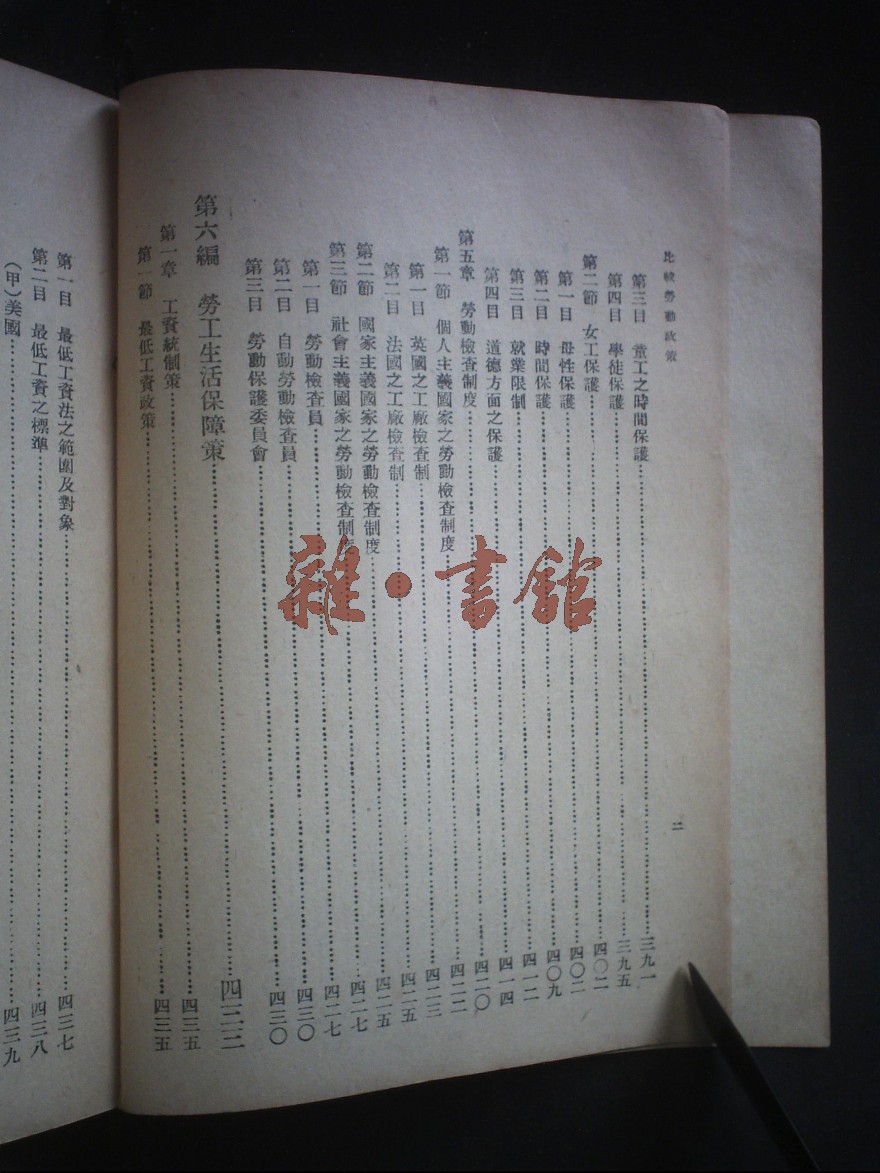 比較勞動政策
二
第三目 童工之時間保護……三九一
第四目 學徒保護……三九五
第二節 女工保護……四〇二
第一目 母性保護……四〇二
第二目 時間保護……四〇九
第三目 就業限制……四一二
第四目 道德方面之保護……四一四
第五章 勞動檢查制度……四二〇
第一節 個人主義國家之勞動檢查制度……四二二
第一目 英國之工廠檢查制……四二三
第二目 法國之工廠檢查制……四二五
第二節 國家主義國家之勞動檢查制度……四二五
第三節 社會主義國家之勞動檢查制度……四二七
第一目 勞動檢查員……四二七
第二目 自動勞動檢查員……四三〇
第三目 勞動保護委員會……四三〇
第六編 勞工生活保障策……四三三
第一章 工資統制策……四三五
第一節 最低工資政策……四三五
第一目 最低工資法之範圍及對象……四三七
第二目 最低工資之標準……四三八
(甲)美國……四三九
雜·書館